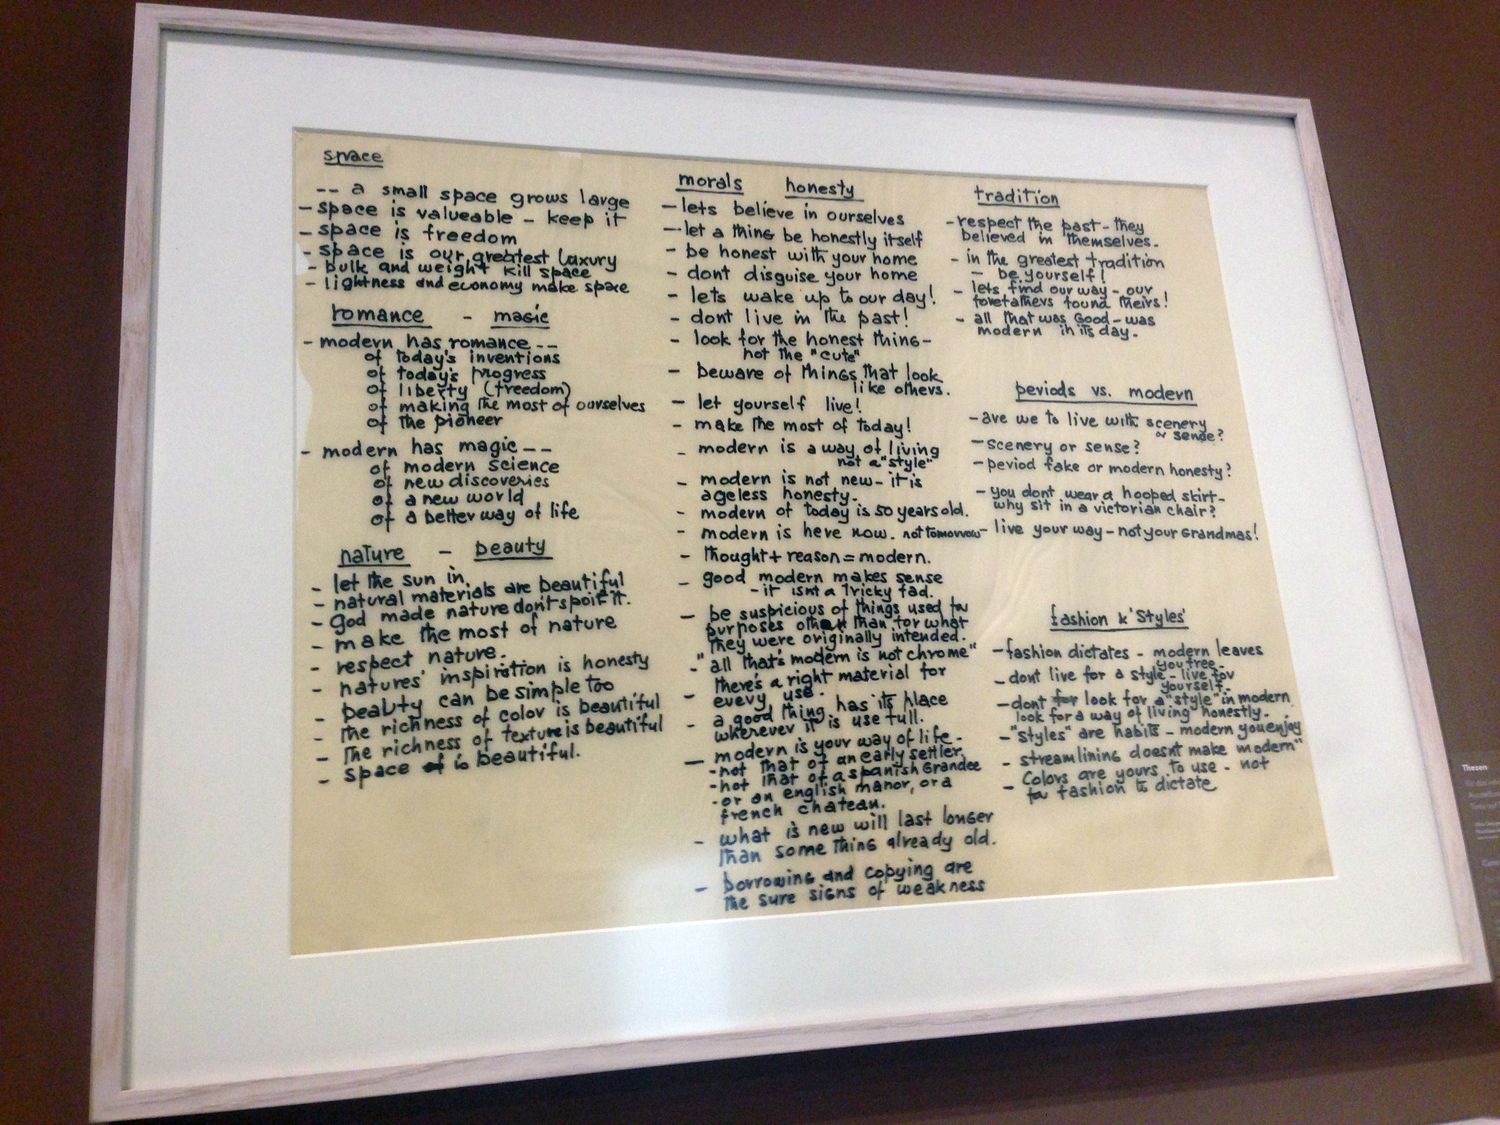 space
-- a small space grows large
- space is valueable - keep it
- space is freedom
- space is our greatest luxury
- bulk and weight kill space
- lightness and economy make space
romance - magic
- modern has romance --
of today's inventions
of today's progress
of liberty (freedom)
of making the most of ourselves
of the pioneer
- modern has magic --
of modern science
of new discoveries
of a new world
of a better way of life
nature - beauty
- let the sun in.
- natural materials are beautiful
- god made nature don't spoil it.
- make the most of nature
- respect nature.
- natures' inspiration is honesty
- beauty can be simple too
- the richness of color is beautiful
- the richness of texture is beautiful
- space is beautiful.
morals honesty
- lets believe in ourselves
- let a thing be honestly itself
- be honest with your home
- dont disguise your home
- lets wake up to our day!
- dont live in the past!
- look for the honest thing -
not the "cute"
- beware of things that look
like others.
- let yourself live!
- make the most of today!
- modern is a way of living
not a "style"
- modern is not new - it is
ageless honesty.
- modern of today is 50 years old.
- modern is here now. not tomorrow
- thought + reason = modern.
- good modern makes sense
- it isnt a tricky fad.
- be suspicious of things used for
purposes other than for what
they were originally intended.
- "all that's modern is not chrome"
there's a right material for
- every use.
- a good thing has its place
wherever it is use full.
- modern is your way of life -
- not that of an early settler,
- not that of a spanish grandee
- or an english manor, or a
french chateau.
- what is new will last longer
than some thing already old.
- borrowing and copying are
the sure signs of weakness
tradition
- respect the past - they
believed in themselves.
- in the greatest tradition
- be yourself!
- lets find our way - our
forefathers found theirs!
- all that was good - was
modern in its day.
periods vs. modern
- are we to live with scenery
or sense?
- scenery or sense?
- period fake or modern honesty?
- you dont wear a hooped skirt -
why sit in a victorian chair?
- live your way - not your grandmas!
fashion & 'styles'
- fashion dictates - modern leaves
you free.
- dont live for a style - live for
yourself.
- dont for look for a "style" in modern
look for a way of living honestly.
- "styles" are habits - modern you enjoy
- streamlining doesnt make modern"
- colors are yours to use - not
for fashion to dictate
Thesen